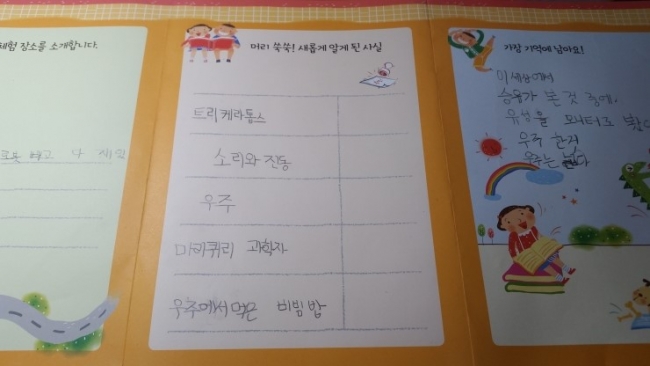 체험 장소를 소개합니다.
머리 쏙쏙! 새롭게 알게 된 사실
트리케라톱스
소리와 진동
우주
마리퀴리 과학자
우주에서 먹은 비빔밥
가장 기억에 남아요!
이 세상에서
승용가 본 것 중에.
유성을 모니터로 봤다
우주 한지
우주는